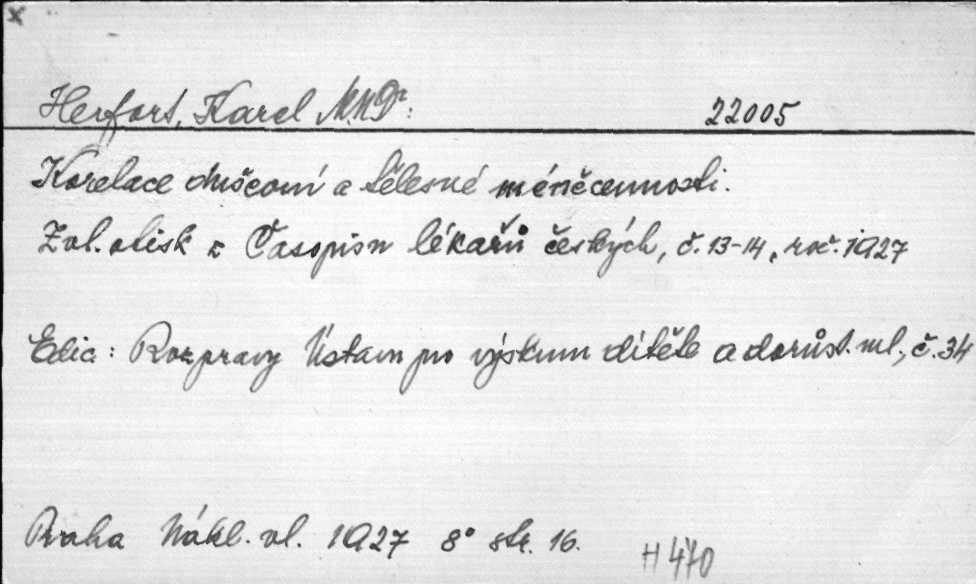 x
Herfort, Karel M.U.Dr. 22005
Korelace duševní a tělesné méněcennosti.
Zvl. otisk z Časopisu lékařů českých, č. 13-14, roč. 1927
Edice: Rozpravy Ústavu pro výskum dítěte a dorůst. ml., č. 34
Praha Nákl. vl. 1927 8° str. 16.
H 470